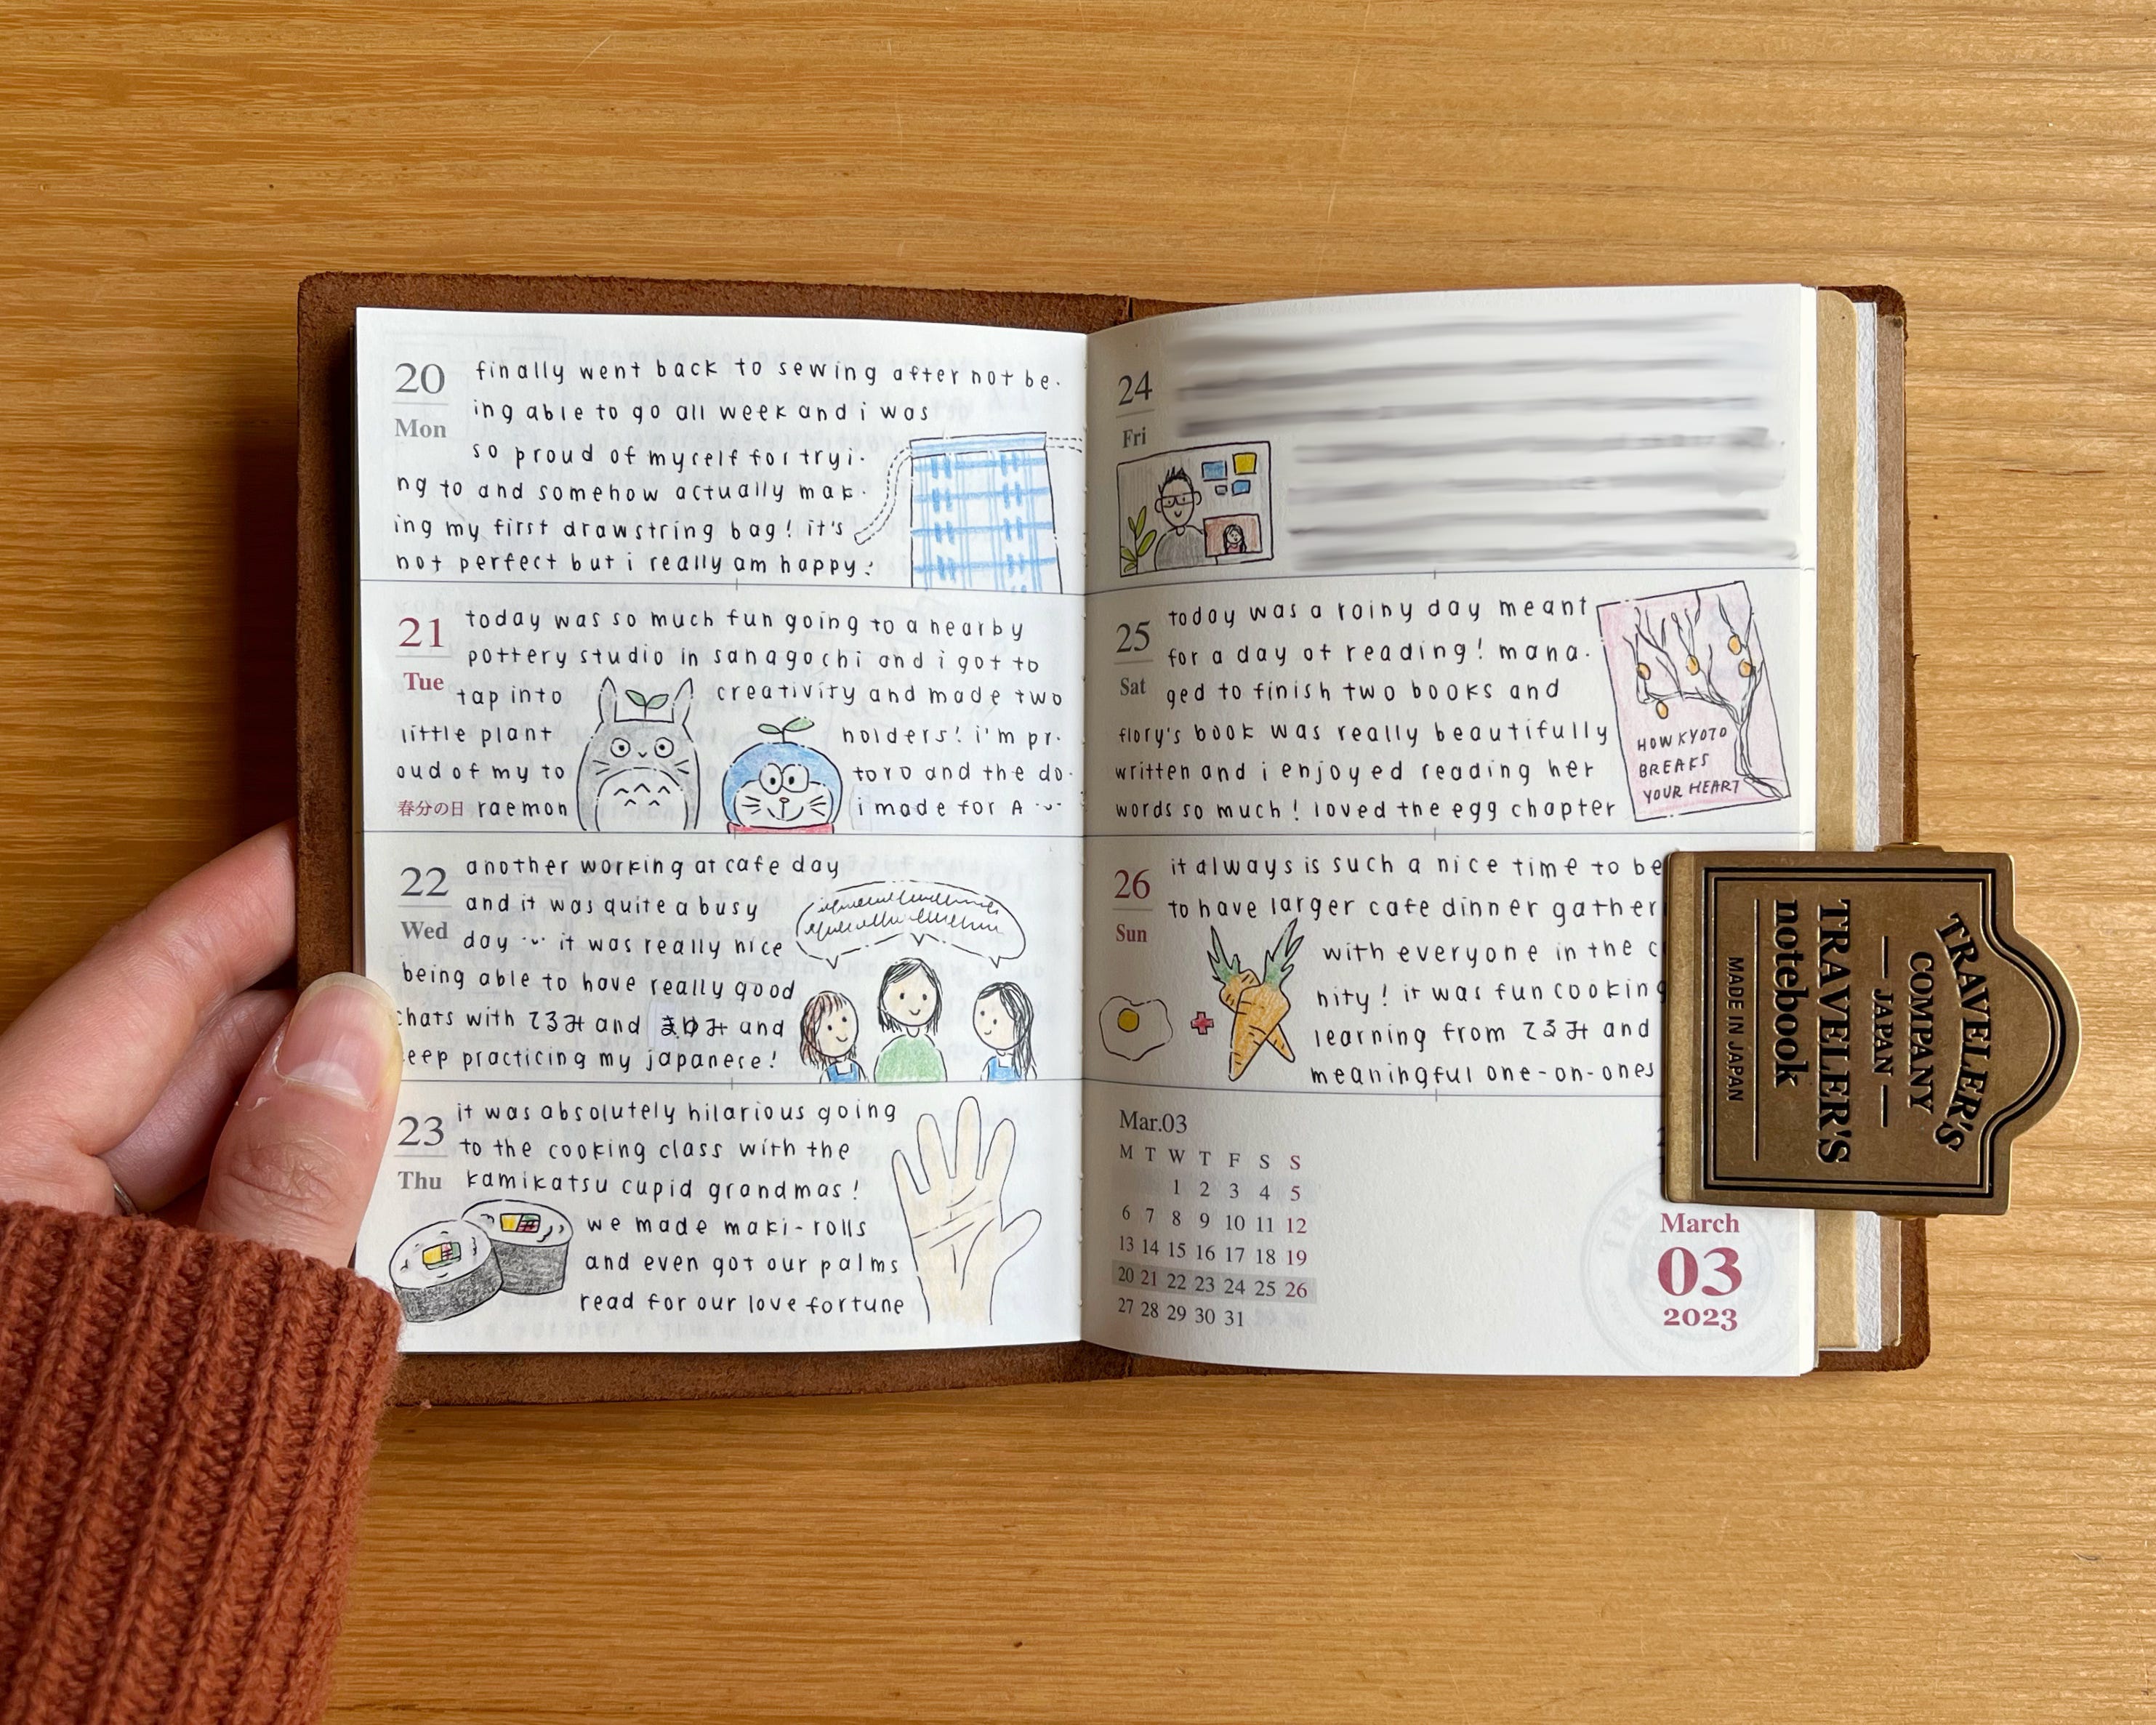 20
Mon
finally went back to sewing after not be-
ing able to go all week and i was
so proud of myself for tryi-
ng to and somehow actually mak-
ing my first drawstring bag! it's
not perfect but i really am happy :)
21
Tue
春分の日
today was so much fun going to a nearby
pottery studio in sanagochi and i got to
tap into creativity and made two
little plant holders! i'm pr-
oud of my to toro and the do-
raemon i made for A
22
Wed
another working at cafe day
and it was quite a busy
day it was really nice
being able to have really good
chats with てるみ and まゆみ and
eep practicing my japanese!
23
Thu
it was absolutely hilarious going
to the cooking class with the
kamikatsu cupid grandmas!
we made maki-rolls
and even got our palms
read for our love fortune
24
Fri
25
Sat
today was a rainy day meant
for a day of reading! mana-
ged to finish two books and
flory's book was really beautifully
written and i enjoyed reading her
words so much! loved the egg chapter
HOW KYOTO
BREAKS
YOUR HEART
26
Sun
it always is such a nice time to be
to have larger cafe dinner gather
with everyone in the c
nity! it was fun cooking
learning from てるみ and
meaningful one-on-ones
Mar.03
M T W T F S S
1 2 3 4 5
6 7 8 9 10 11 12
13 14 15 16 17 18 19
20 21 22 23 24 25 26
27 28 29 30 31
March
03
2023
TRAVELER'S
COMPANY
JAPAN
TRAVELER'S
notebook
MADE IN JAPAN